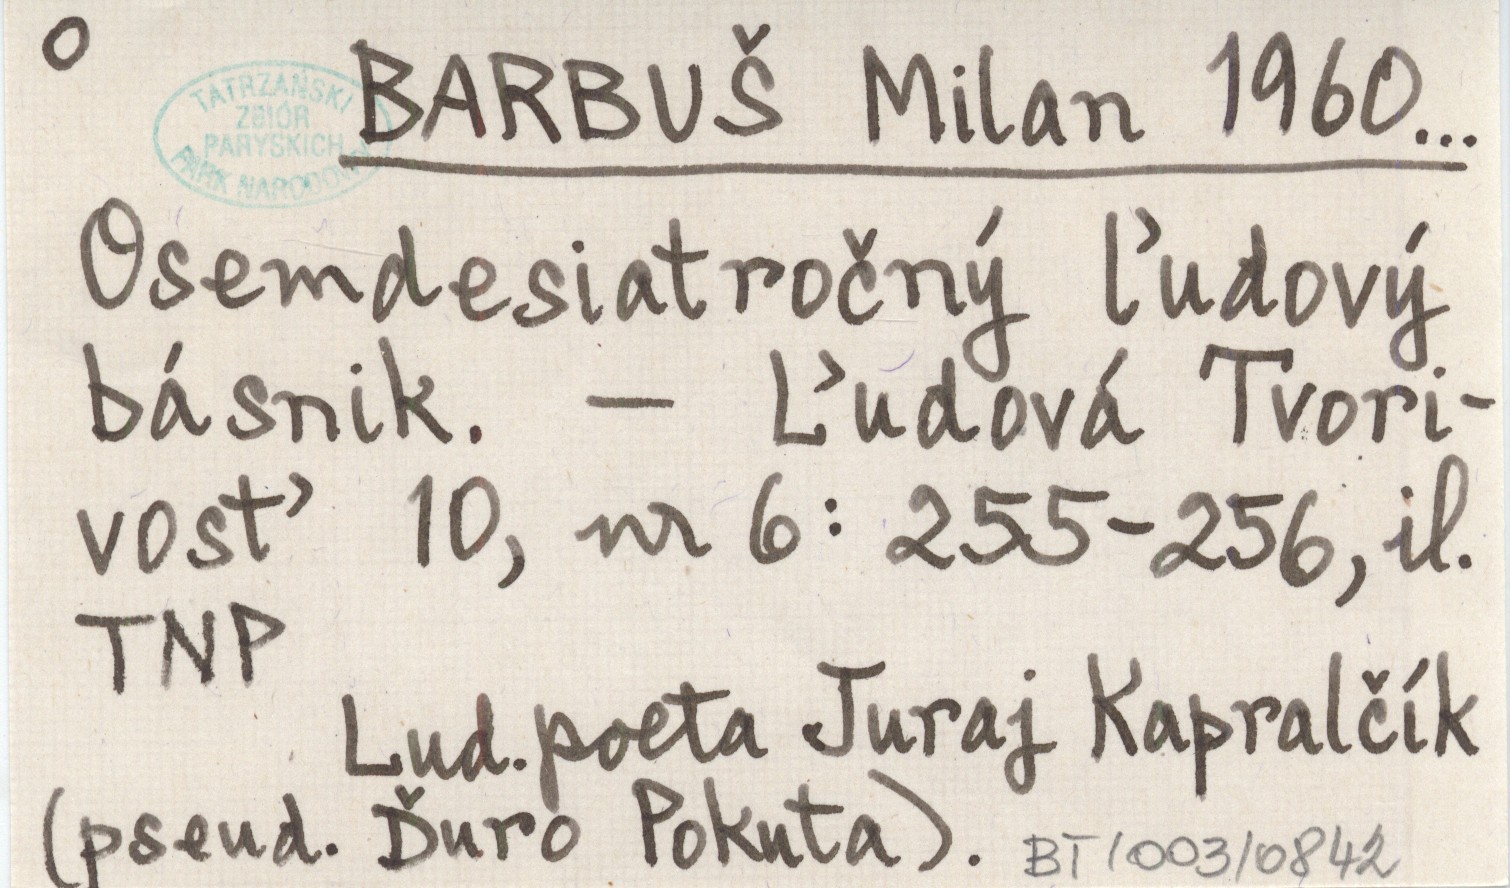 O
TATRZAŃSKI
ZBIÓR
PARYSKICH
PARK NARODOWY
BARBUŠ Milan 1960...
Osemdesiatročný ľudový
básnik. — Ľudová Tvori-
vosť 10, nr 6: 255-256, il.
TNP
Lud. poeta Juraj Kapralčík
(pseud. Ďuro Pokuta).
BT/003/0842